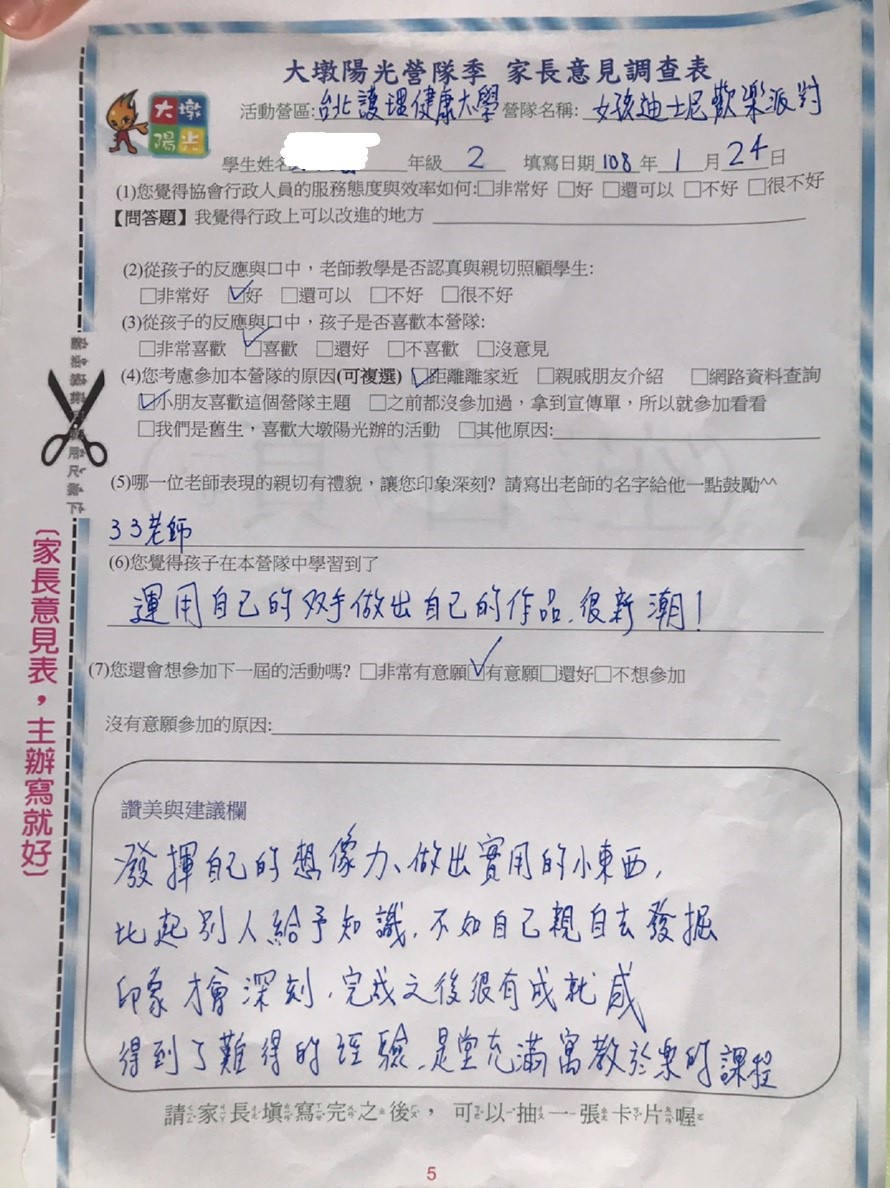 大墩陽光營隊季 家長意見調查表
大墩
陽光
活動營區:台北護理健康大學營隊名稱:女孩迪士尼歡樂派對
學生姓名 年級 2 填寫日期 108 年 1 月 24 日
(1)您覺得協會行政人員的服務態度與效率如何:□非常好 □好 □還可以 □不好 □很不好
【問答題】我覺得行政上可以改進的地方
(2)從孩子的反應與口中，老師教學是否認真與親切照顧學生:
□非常好 ☑好 □還可以 □不好 □很不好
(3)從孩子的反應與口中，孩子是否喜歡本營隊:
□非常喜歡 ☑喜歡 □還好 □不喜歡 □沒意見
(4)您考慮參加本營隊的原因(可複選) ☑距離離家近 □親戚朋友介紹 □網路資料查詢
☑小朋友喜歡這個營隊主題 □之前都沒參加過，拿到宣傳單，所以就參加看看
□我們是舊生，喜歡大墩陽光辦的活動 □其他原因:
(5)哪一位老師表現的親切有禮貌，讓您印象深刻? 請寫出老師的名字給他一點鼓勵^^
33老師
(6)您覺得孩子在本營隊中學習到了
運用自己的双手做出自己的作品,很新潮!
(7)您還會想參加下一屆的活動嗎? □非常有意願☑有意願□還好□不想參加
沒有意願參加的原因:
讚美與建議欄
發揮自己的想像力、做出實用的小東西,
比起別人給予知識,不如自己親自去發掘
印象才會深刻,完成之後很有成就感
得到了難得的经驗,是堂充滿寓教於樂的課程
請家長填寫完之後，可以抽一張卡片喔
〔家長意見表，主辦寫就好〕
5